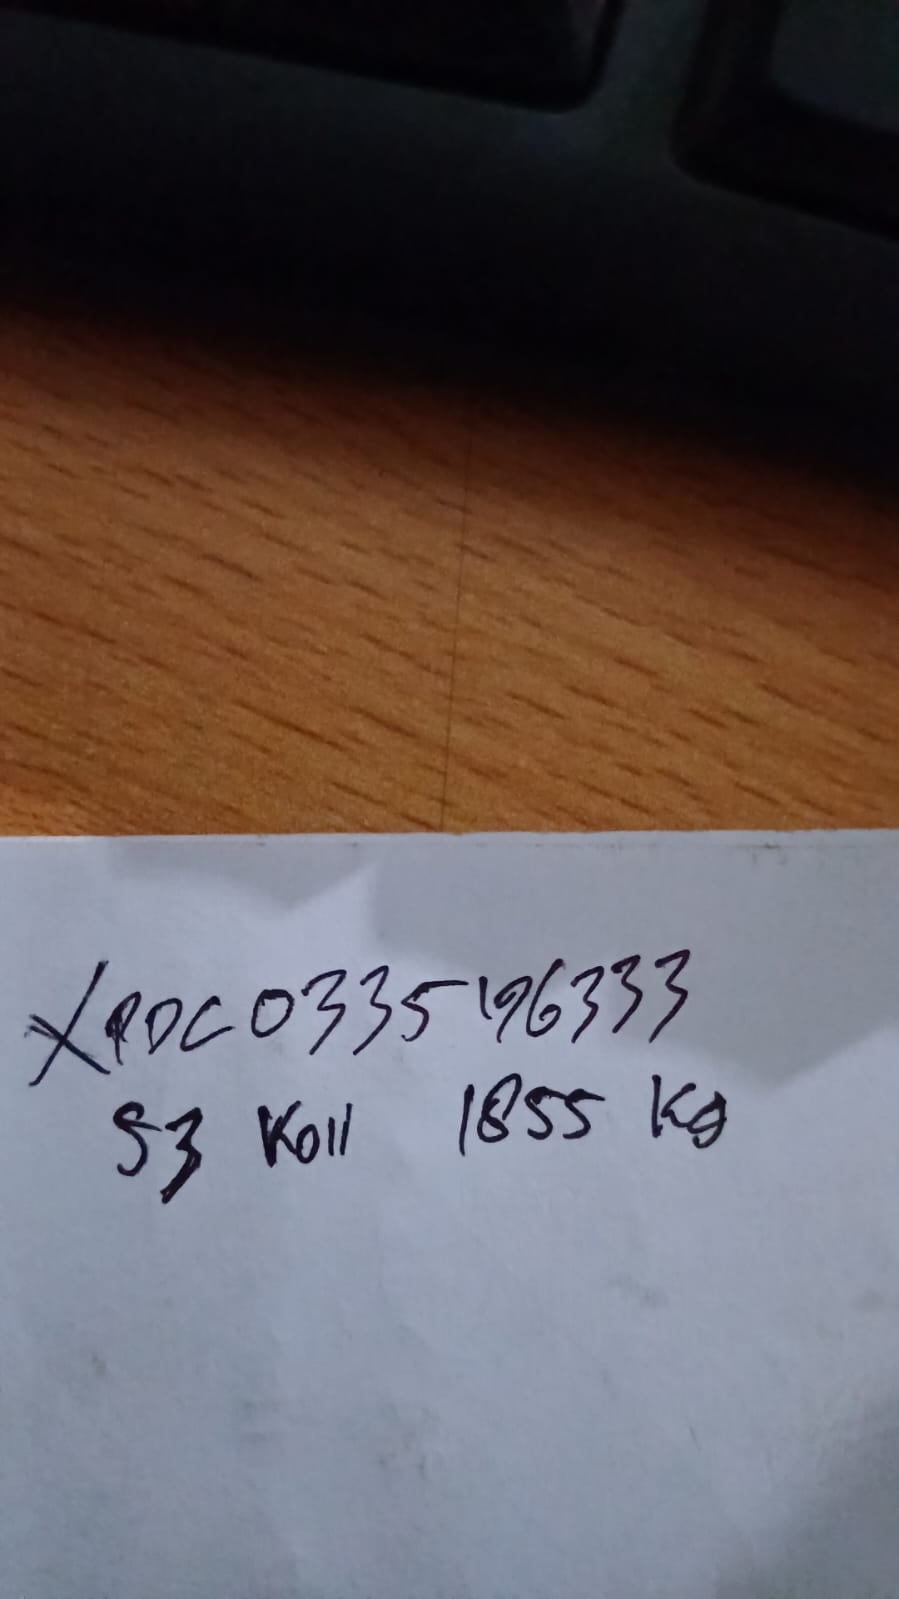 XPDC0335196333
53 Koll 1855 Kg